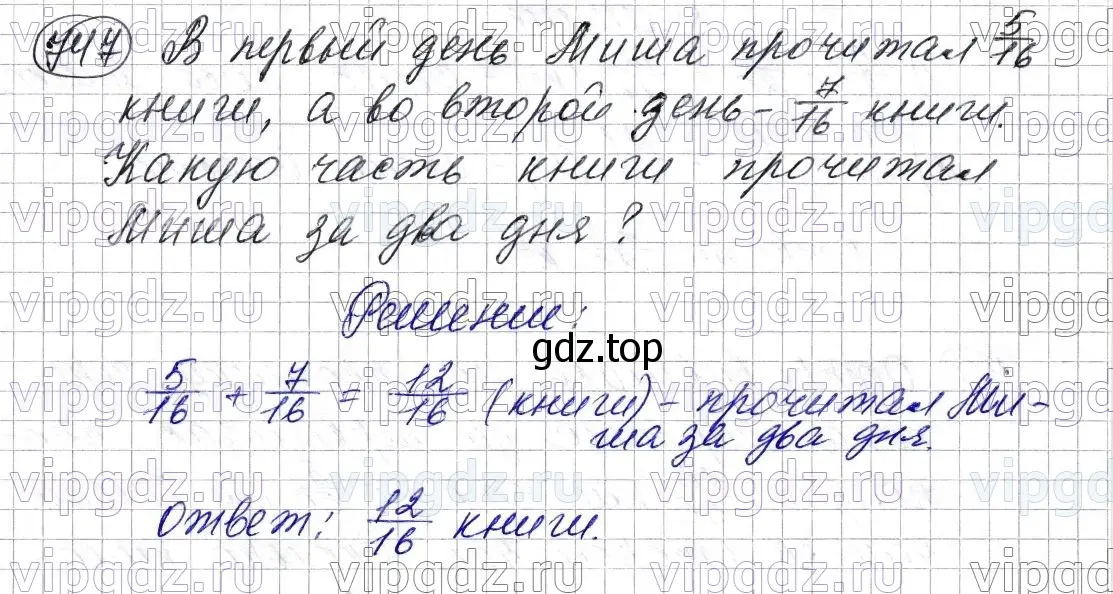 747 В первый день Миша прочитал 5/16
книги, а во второй день – 7/16 книги.
Какую часть книги прочитал
Миша за два дня?
Решение:
gdz.top
5/16 + 7/16 = 12/16 (книги) – прочитал Ми-
ша за два дня.
Ответ: 12/16 книги.
vipgdz.ru